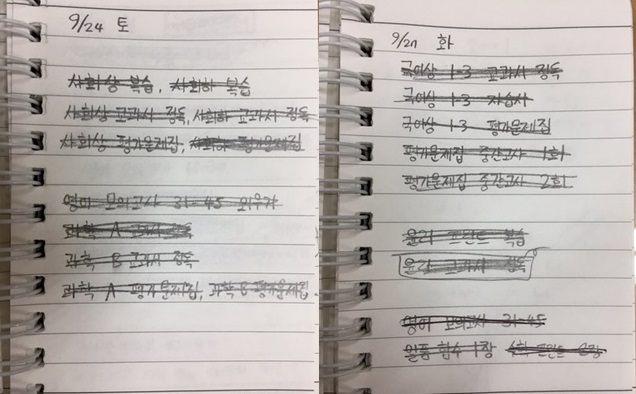 9/24 토
사회상 복습, 사회하 복습
사회상 교과서 정독, 사회하 교과서 정독
사회상 평가문제집, 사회하 평가문제집
영어 모의고사 31-45 외우기
과학 A 교과서 정독
과학 B 교과서 정독
과학 A 평가문제집, 과학 B 평가문제집
9/27 화
국어상 1-3 교과서 정독
국어상 1-3 자습서
국어상 1-3 평가문제집
평가문제집 중간고사 1회
평가문제집 중간고사 2회
윤리 프린트 복습
윤리 교과서 정독
영어 모의고사 31-45
일품 함수 1장 수학 프린트 2장